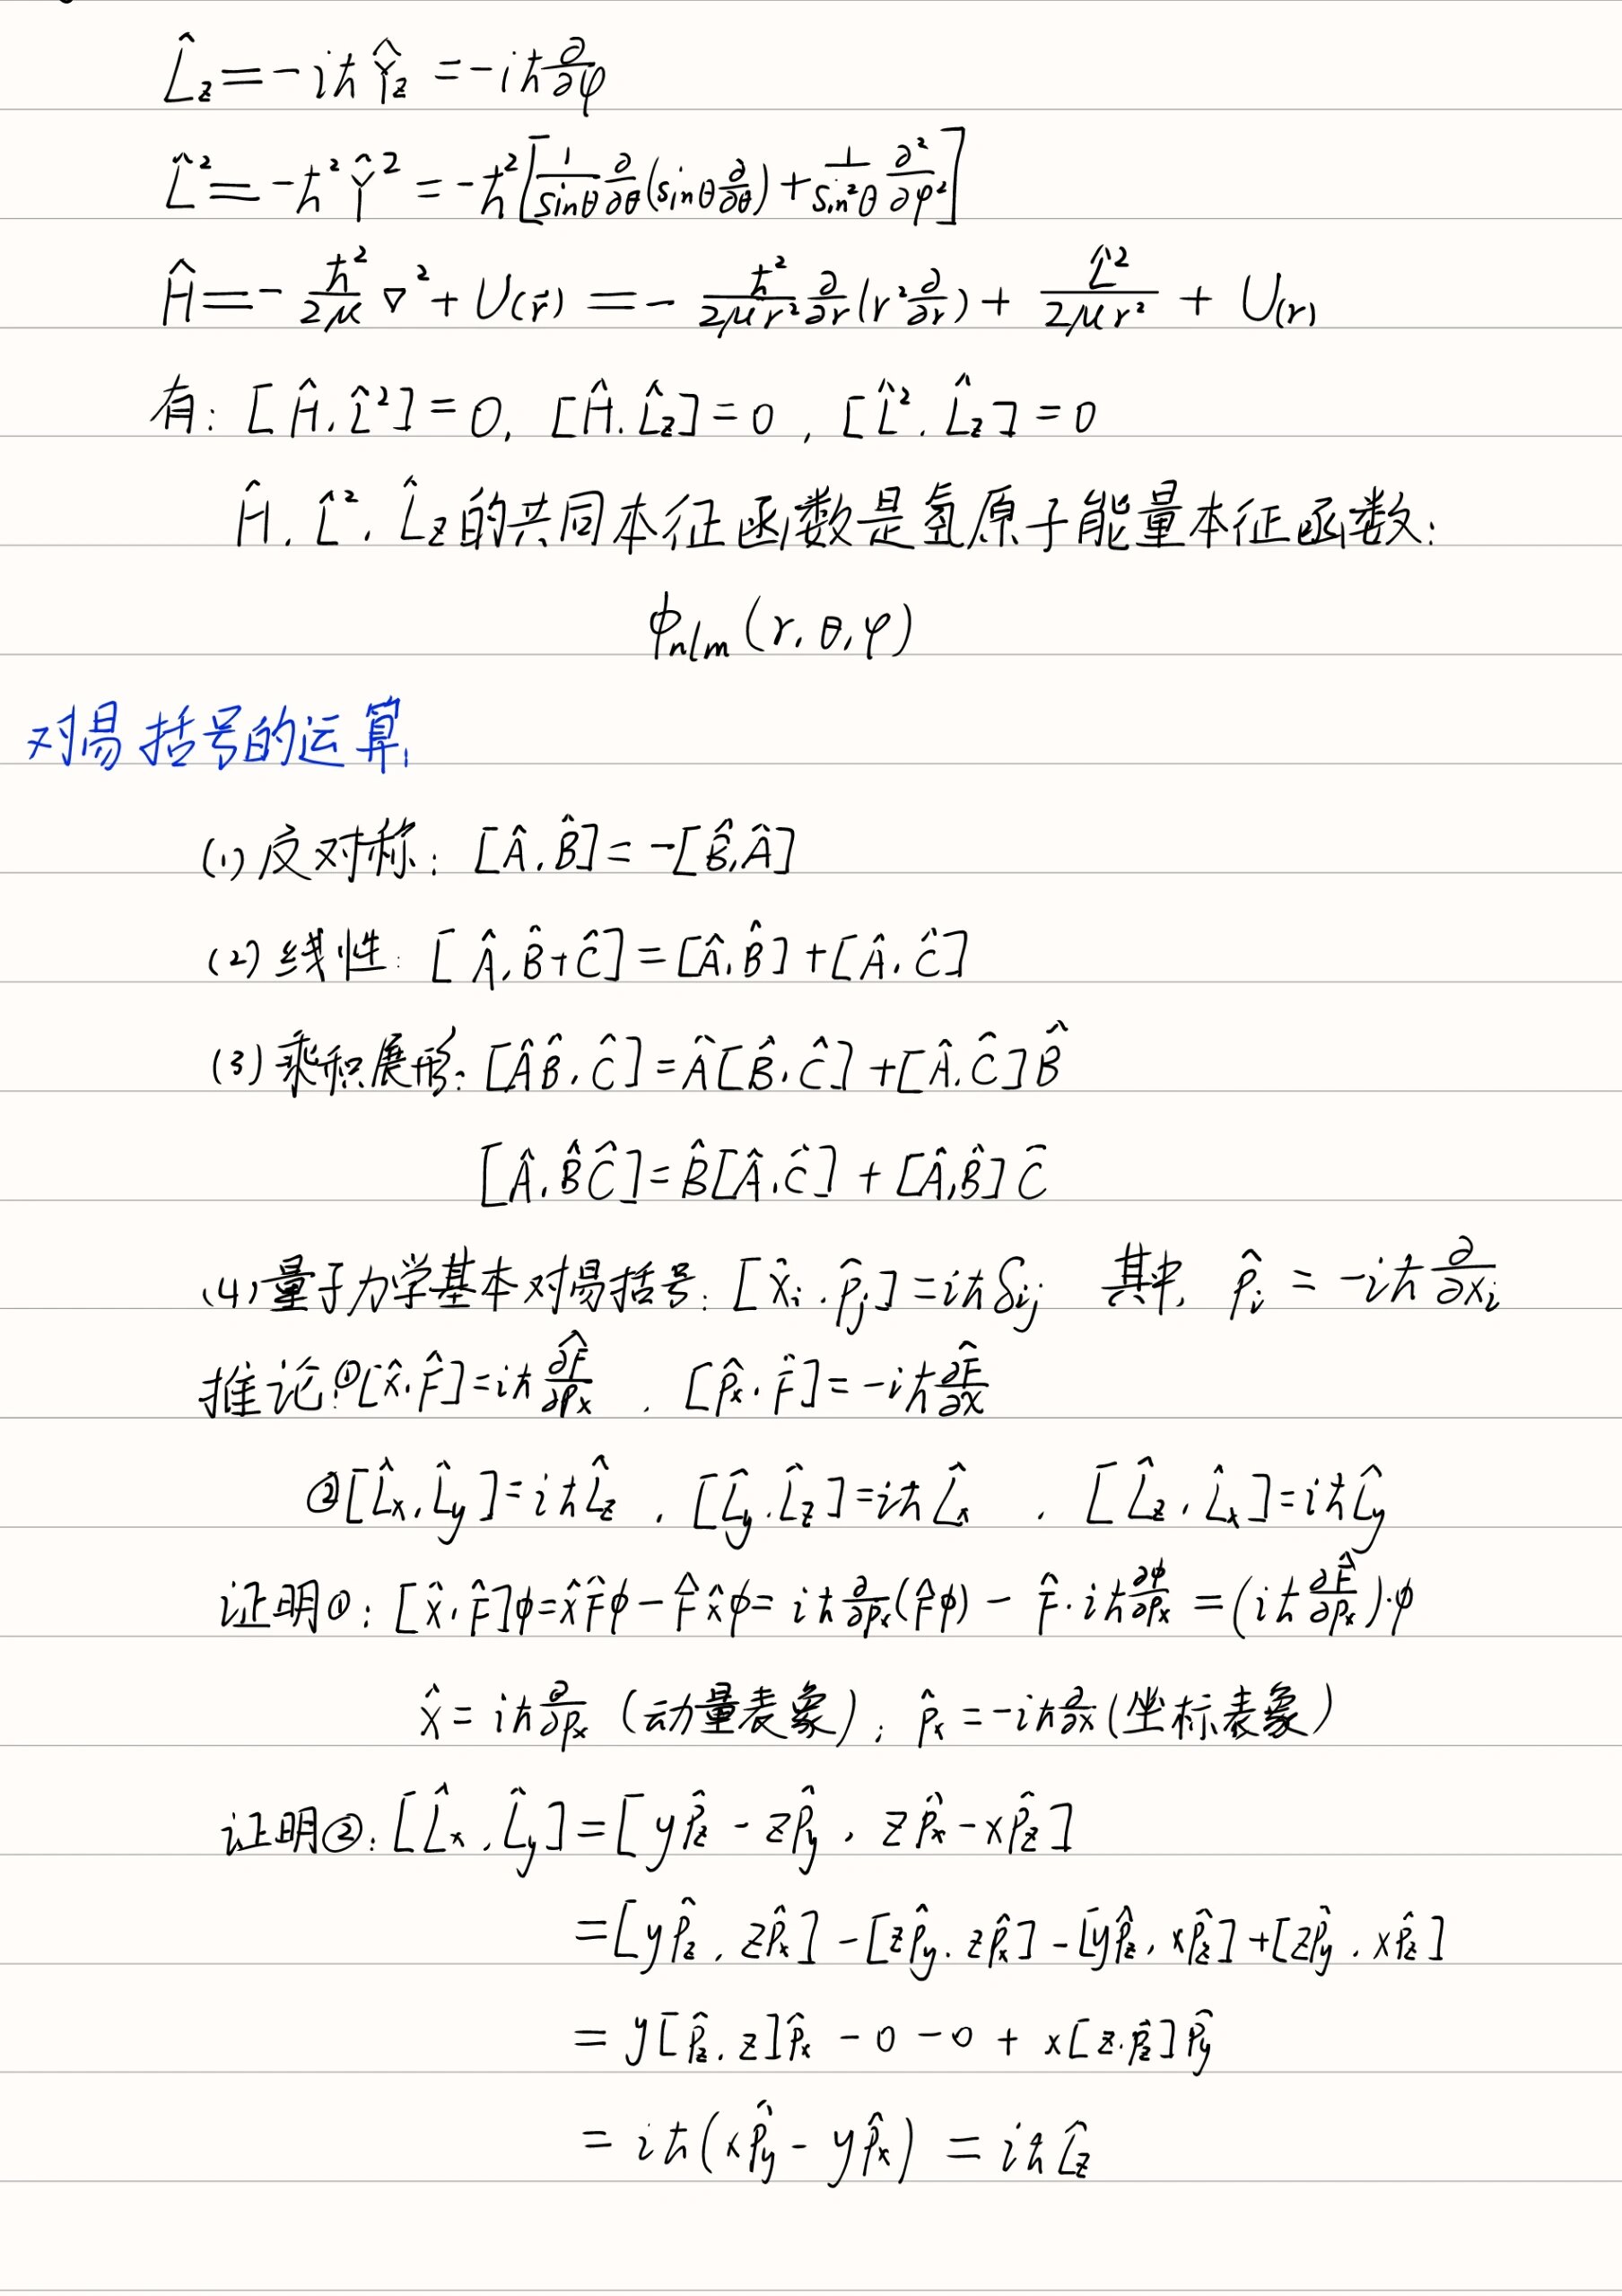 L̂_z = -iħŶ_z = -iħ ∂/∂φ
L̂² = -ħ²Ŷ² = -ħ²[1/sinθ ∂/∂θ(sinθ ∂/∂θ) + 1/sin²θ ∂²/∂φ²]
Ĥ = -ħ²/2μ ∇² + U(r⃗) = -ħ²/2μr² ∂/∂r(r² ∂/∂r) + L̂²/2μr² + U(r)
有: [Ĥ, L̂²] = 0, [Ĥ, L̂_z] = 0, [L̂², L̂_z] = 0
Ĥ, L̂², L̂_z的共同本征函数是氢原子能量本征函数:
ϕ_nlm(r, θ, φ)
对易括号的运算
(1) 反对称: [Â, B̂] = -[B̂, Â]
(2) 线性: [Â, B̂+Ĉ] = [Â, B̂] + [Â, Ĉ]
(3) 乘积展形: [ÂB̂, Ĉ] = Â[B̂, Ĉ] + [Â, Ĉ]B̂
[Â, B̂Ĉ] = B̂[Â, Ĉ] + [Â, B̂]Ĉ
(4) 量子力学基本对易括号: [x̂_i, p̂_j] = iħδ_ij 其中, p̂_i = -iħ ∂/∂x_i
推论: ①[x̂, F̂] = iħ ∂F̂/∂p_x , [p̂_x, F̂] = -iħ ∂F̂/∂x
②[L̂_x, L̂_y] = iħL̂_z , [L̂_y, L̂_z] = iħL̂_x , [L̂_z, L̂_x] = iħL̂_y
证明①: [x̂, F̂]ϕ = x̂F̂ϕ - F̂x̂ϕ = iħ ∂/∂p_x(F̂ϕ) - F̂·iħ ∂ϕ/∂p_x = (iħ ∂F̂/∂p_x)·ϕ
x̂ = iħ ∂/∂p_x (动量表象); p̂_x = -iħ ∂/∂x (坐标表象)
证明②: [L̂_x, L̂_y] = [yp̂_z - zp̂_y, zp̂_x - xp̂_z]
= [yp̂_z, zp̂_x] - [zp̂_y, zp̂_x] - [yp̂_z, xp̂_z] + [zp̂_y, xp̂_z]
= y[p̂_z, z]p̂_x - 0 - 0 + x[z, p̂_z]p̂_y
= iħ(xp̂_y - yp̂_x) = iħL̂_z